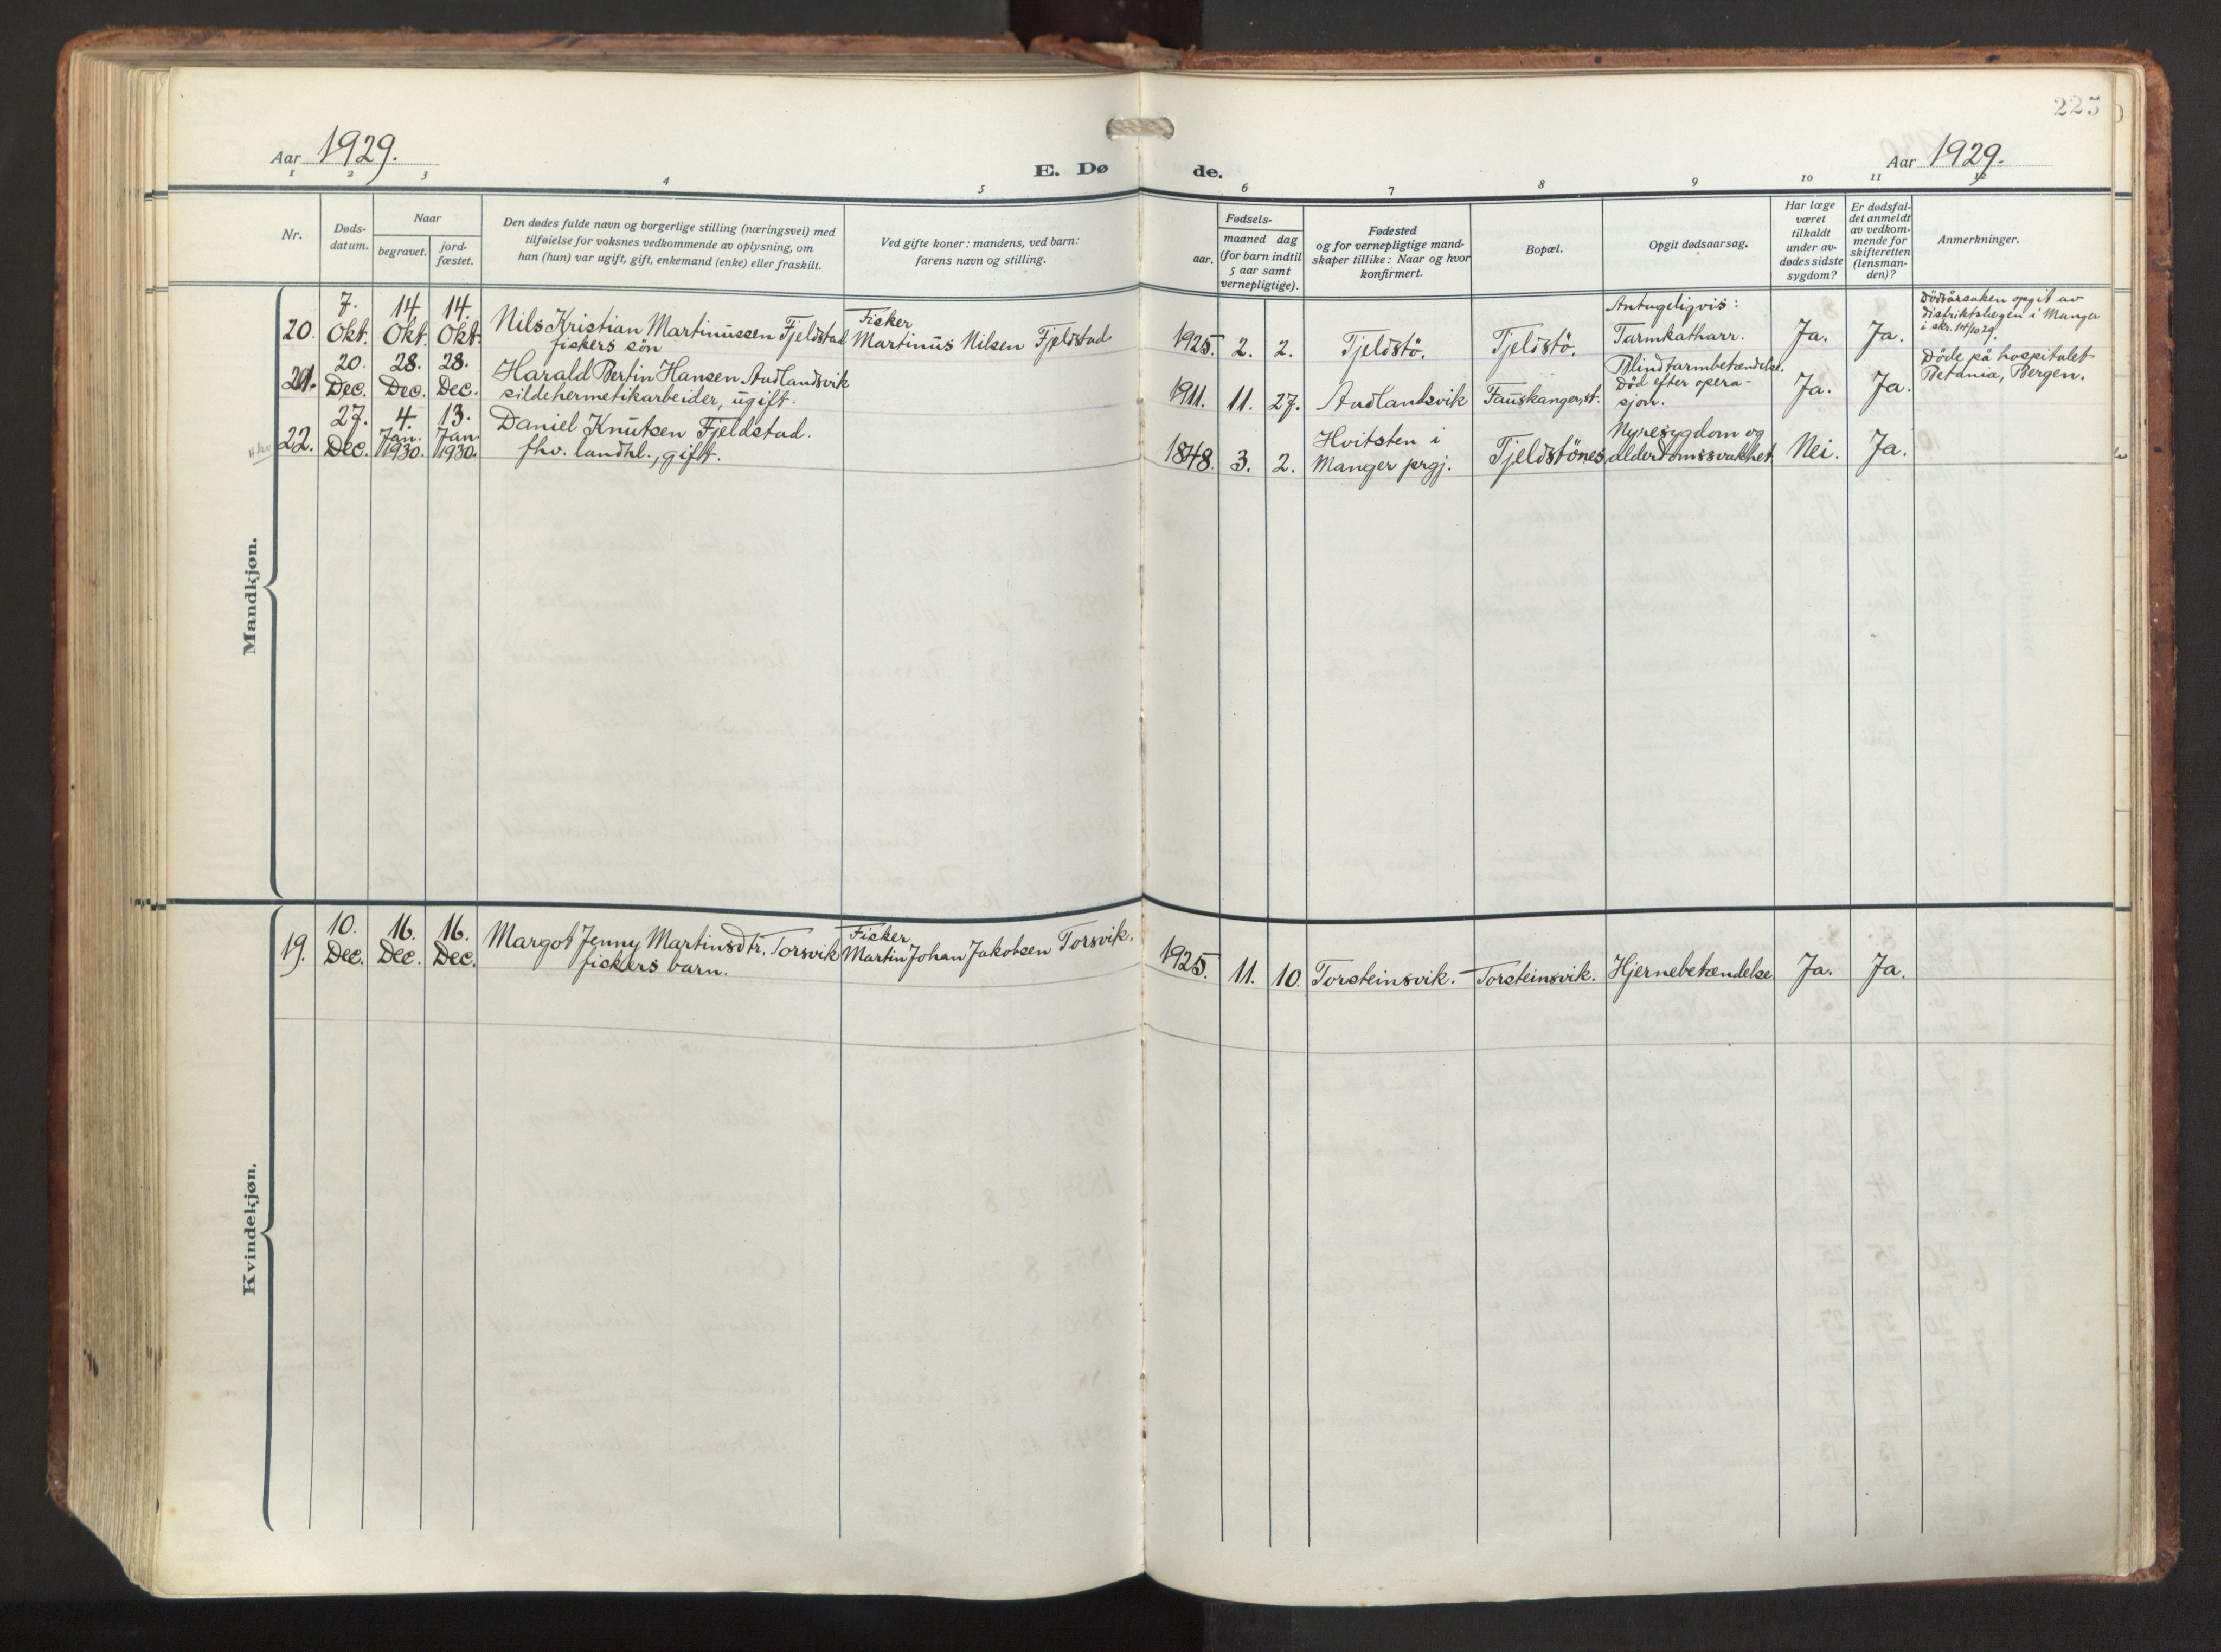 225
Aar 1929.
E. Døde.
Aar 1929.
1 2 3 4 5 6 7 8 9 10 11 12
Nr.
Døds-
datum.
Naar
begravet.
jord-
fæstet.
Den dødes fulde navn og borgerlige stilling (næringsvei) med
tilføielse for voksnes vedkommende av oplysning, om
han (hun) var ugift, gift, enkemand (enke) eller fraskilt.
Ved gifte koner: mandens, ved barn:
farens navn og stilling.
Fødsels-
aar.
maaned dag
(for barn indtil
5 aar samt
vernepligtige).
Fødested
og for vernepligtige mand-
skaper tillike: Naar og hvor
konfirmert.
Bopæl.
Opgit dødsaarsag.
Har læge
været
tilkaldt
under av-
dødes sidste
sygdom?
Er dødsfal-
det anmeldt
av vedkom-
mende for
skifteretten
(lensman-
den)?
Anmerkninger.
Mandkjøn.
20.
7.
Okt.
14.
Okt.
14.
Okt.
Nils Kristian Martinussen Fjeldstad
fiskers sön
Fisker
Martinus Nilsen Fjeldstad
1925. 2. 2.
Tjeldstö.
Tjeldstö.
Antageligvis:
Tarmkatharr.
Ja.
Ja.
Dödsårsaken opgit av
distriktslægen i Manger
i skr. 14/10 29.
21.
20.
Dec.
28.
Dec.
28.
Dec.
Harald Bertin Hansen Audlandsvik
sildehermetikarbeider, ugift.
1911. 11. 27.
Audlandsvik
Fauskanger, st.
Blindtarmbetændelse.
Död efter opera-
sjon.
Ja.
Ja.
Döde på hospitalet
Betania, Bergen.
22.
27.
Dec.
4.
Jan.
1930.
13.
Jan.
1930.
Daniel Knutsen Fjeldstad.
fhv. landhl., gift.
1848. 3. 2.
Hvitsten i
Manger prgj.
Tjeldstönes
Nyresygdom og
alderdomssvakhet.
Nei.
Ja.
Kvindekjøn.
19.
10.
Dec.
16.
Dec.
16.
Dec.
Margot Jenny Martinsdtr. Torsvik
fiskers barn.
Fisker
Martin Johan Jakobsen Torsvik.
1925. 11. 10.
Torsteinsvik.
Torsteinsvik.
Hjernebetændelse
Ja.
Ja.